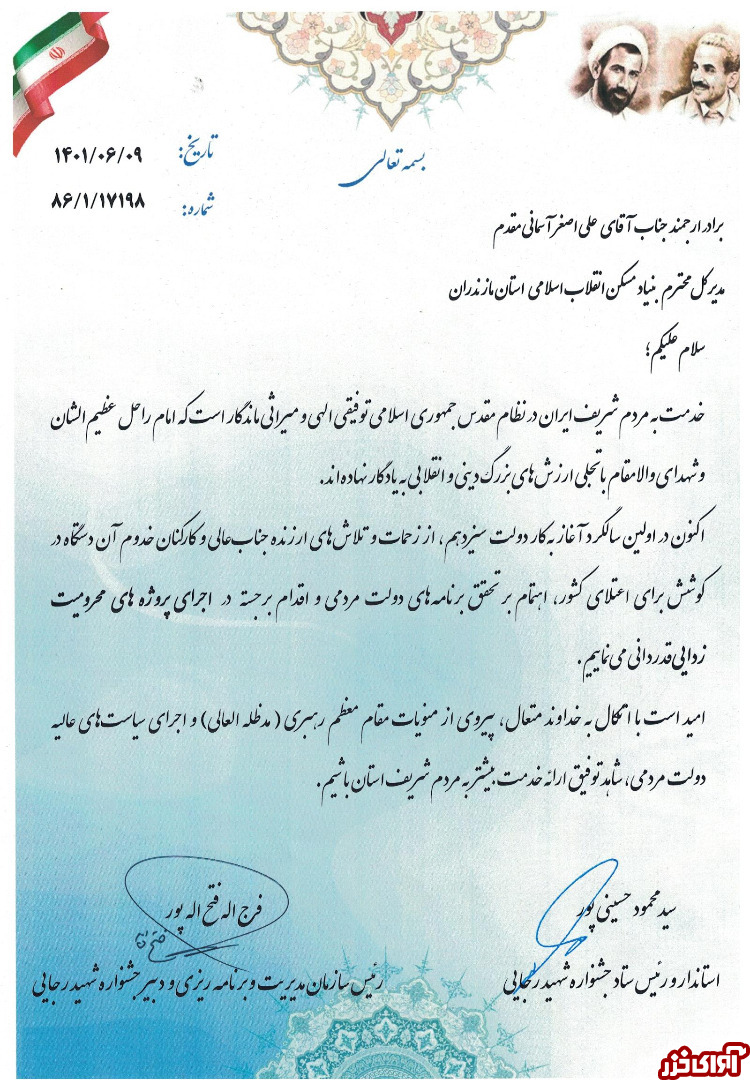 بسمه تعالی
تاریخ: ۱۴۰۱/۰۶/۰۹
شماره: ۸۶/۱/۱۷۱۹۸
برادر ارجمند جناب آقای علی اصغر آسمانی مقدم
مدیرکل محترم بنیاد مسکن انقلاب اسلامی استان مازندران
سلام علیکم؛
خدمت به مردم شریف ایران در نظام مقدس جمهوری اسلامی توفیقی الهی و میراثی ماندگار است که امام راحل عظیم الشان
و شهدای والامقام با تجلی ارزش های بزرگ دینی و انقلابی به یادگار نهاده اند.
اکنون در اولین سالگرد آغاز به کار دولت سیزدهم، از زحمات و تلاش های ارزنده جناب عالی و کارکنان خدوم آن دستگاه در
کوشش برای اعتلای کشور، اهتمام بر تحقق برنامه های دولت مردمی و اقدام برجسته در اجرای پروژه های محرومیت
زدایی قدردانی می نماییم.
امید است با اتکال به خداوند متعال، پیروی از منویات مقام معظم رهبری (مدظله العالی) و اجرای سیاست های عالیه
دولت مردمی، شاهد توفیق ارائه خدمت بیشتر به مردم شریف استان باشیم.
سید محمود حسینی پور
استاندار و رئیس ستاد جشنواره شهید رجایی
فرج اله فتح اله پور
رئیس سازمان مدیریت و برنامه ریزی و دبیر جشنواره شهید رجایی
آوای خزر